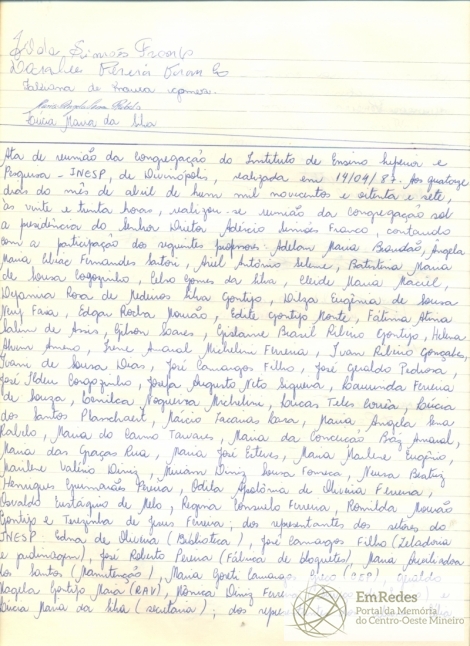 Simões Franco
Fabiana de França
Lúcia Maria da Silva
Ata de reunião da Congregação do Instituto de Ensino Superior e
Pesquisa - INESP, de Divinópolis, realizada em 14/04/87. Aos quatorze
dias do mês de abril de hum mil novecentos e oitenta e sete,
às vinte e trinta horas, realizou-se reunião da Congregação sob
a presidência do Senhor Diretor Adércio Simões Franco, contando
com a participação dos seguintes professores: Adelan Maria Brandão, Ângela
Maria Fernandes Satori, Ariel Antônio Selene, Batistina Maria
de Sousa Corgozinho, Celso Gomes da Silva, Cleide Maria Maciel,
Dejanira Rosa de Medeiros Silva Gontijo, Dilza Eugênia de Sousa
Ney Faria, Edgar Rocha Mourão, Edite Gontijo Monte, Fátima
Salim de Assis, Gilson Soares, Gislaine Brasil Ribeiro Gontijo, Helena
Alvim Ameno, Irene Amaral Michelini Ferreira, Ivan Ribeiro Gonçalves,
Ivani de Sousa Dias, José Camargos Filho, José Geraldo Pedrosa,
José Corgozinho, Josefa Augusto Neto Siqueira, Laurinda Ferreira
de Souza, Lenilca Nogueira Michelini, Lucas Teles Corrêa, Lúcia
dos Santos, Márcio Zacarias Lara, Maria Ângela Lena
Rabelo, Maria do Carmo Tavares, Maria da Conceição Amaral,
Maria das Graças Rua, Maria José Esteves, Maria Marlene Eugênio,
Marilene Valério Diniz, Miriam Diniz Sousa Fonseca, Neusa Beatriz
Henriques Guimarães Pereira, Odila Apolônia de Oliveira Ferreira,
Osvaldo Eustáquio de Melo, Regina Consuelo Ferreira, Romilda Mourão
Gontijo e Terezinha de Jesus Ferreira; dos representantes dos setores do
INESP: Edna de Oliveira (Biblioteca), José Camargos Filho (Zeladoria
e jardinagem), José Roberto Pereira (Fábrica de bloquetes), Maria Auxiliadora
dos Santos (Manutenção), Maria Gorete Camargos (CEP), Geraldo
Magela Gontijo Maia (RAV), Mônica Diniz
Lúcia Maria da Silva (secretaria); dos
EmRedes
Portal da Memória
do Centro-Oeste Mineiro